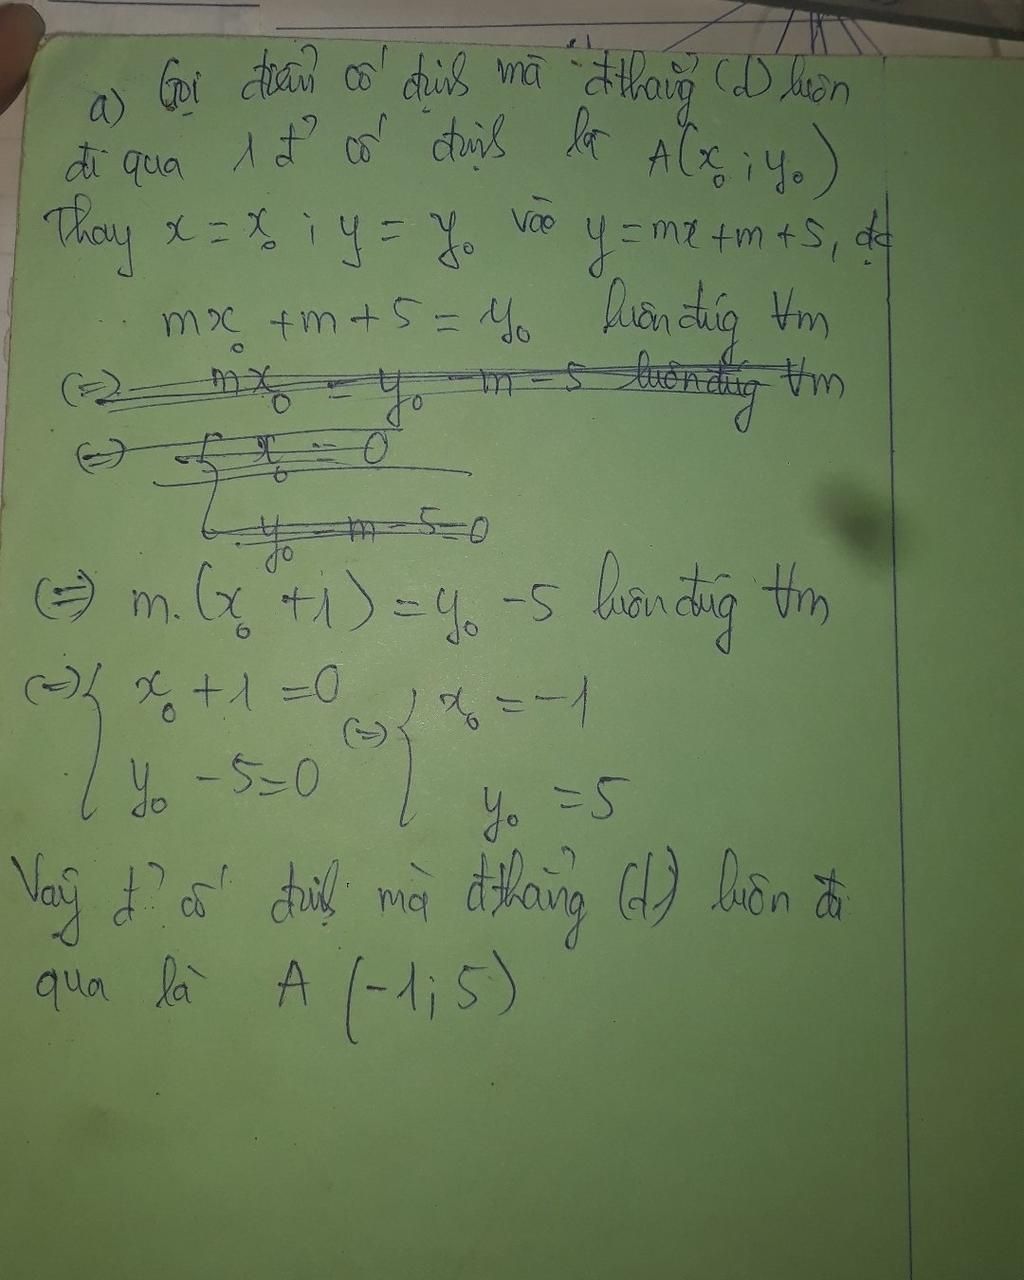 a) Gọi điểm cố định mà đthẳng (d) luôn
đi qua 1 đ' cố định là A(x₀; y₀)
Thay x = x₀; y = y₀ vào y = mx + m + 5, đc
mx₀ + m + 5 = y₀ luôn đúg ∀m
(=) mx₀ = y₀ - m - 5 luôn đúg ∀m
(=) { x₀ = 0
y₀ - m - 5 = 0
(=) m.(x₀ + 1) = y₀ - 5 luôn đúg ∀m
(=) { x₀ + 1 = 0 (=) { x₀ = -1
y₀ - 5 = 0 y₀ = 5
Vậy đ' cố định mà đthẳng (d) luôn đi
qua là A (-1; 5)